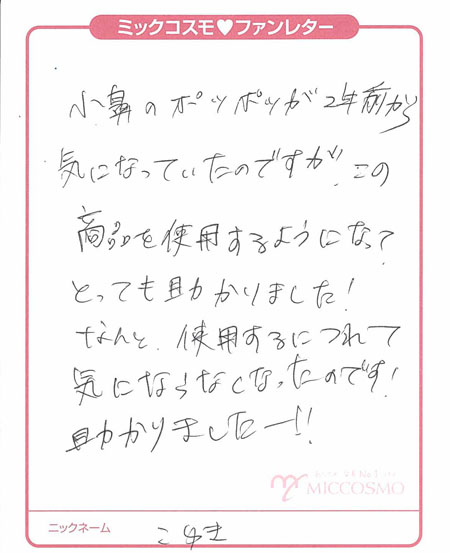 ミックコスモ♥ファンレター
小鼻のポツポツが2年前から
気になっていたのですが、この
商品を使用するようになって
とっても助かりました！
なんと、使用するにつれて
気にならなくなったのです！
助かりましたー!!
MICCOSMO
ニックネーム こゆき